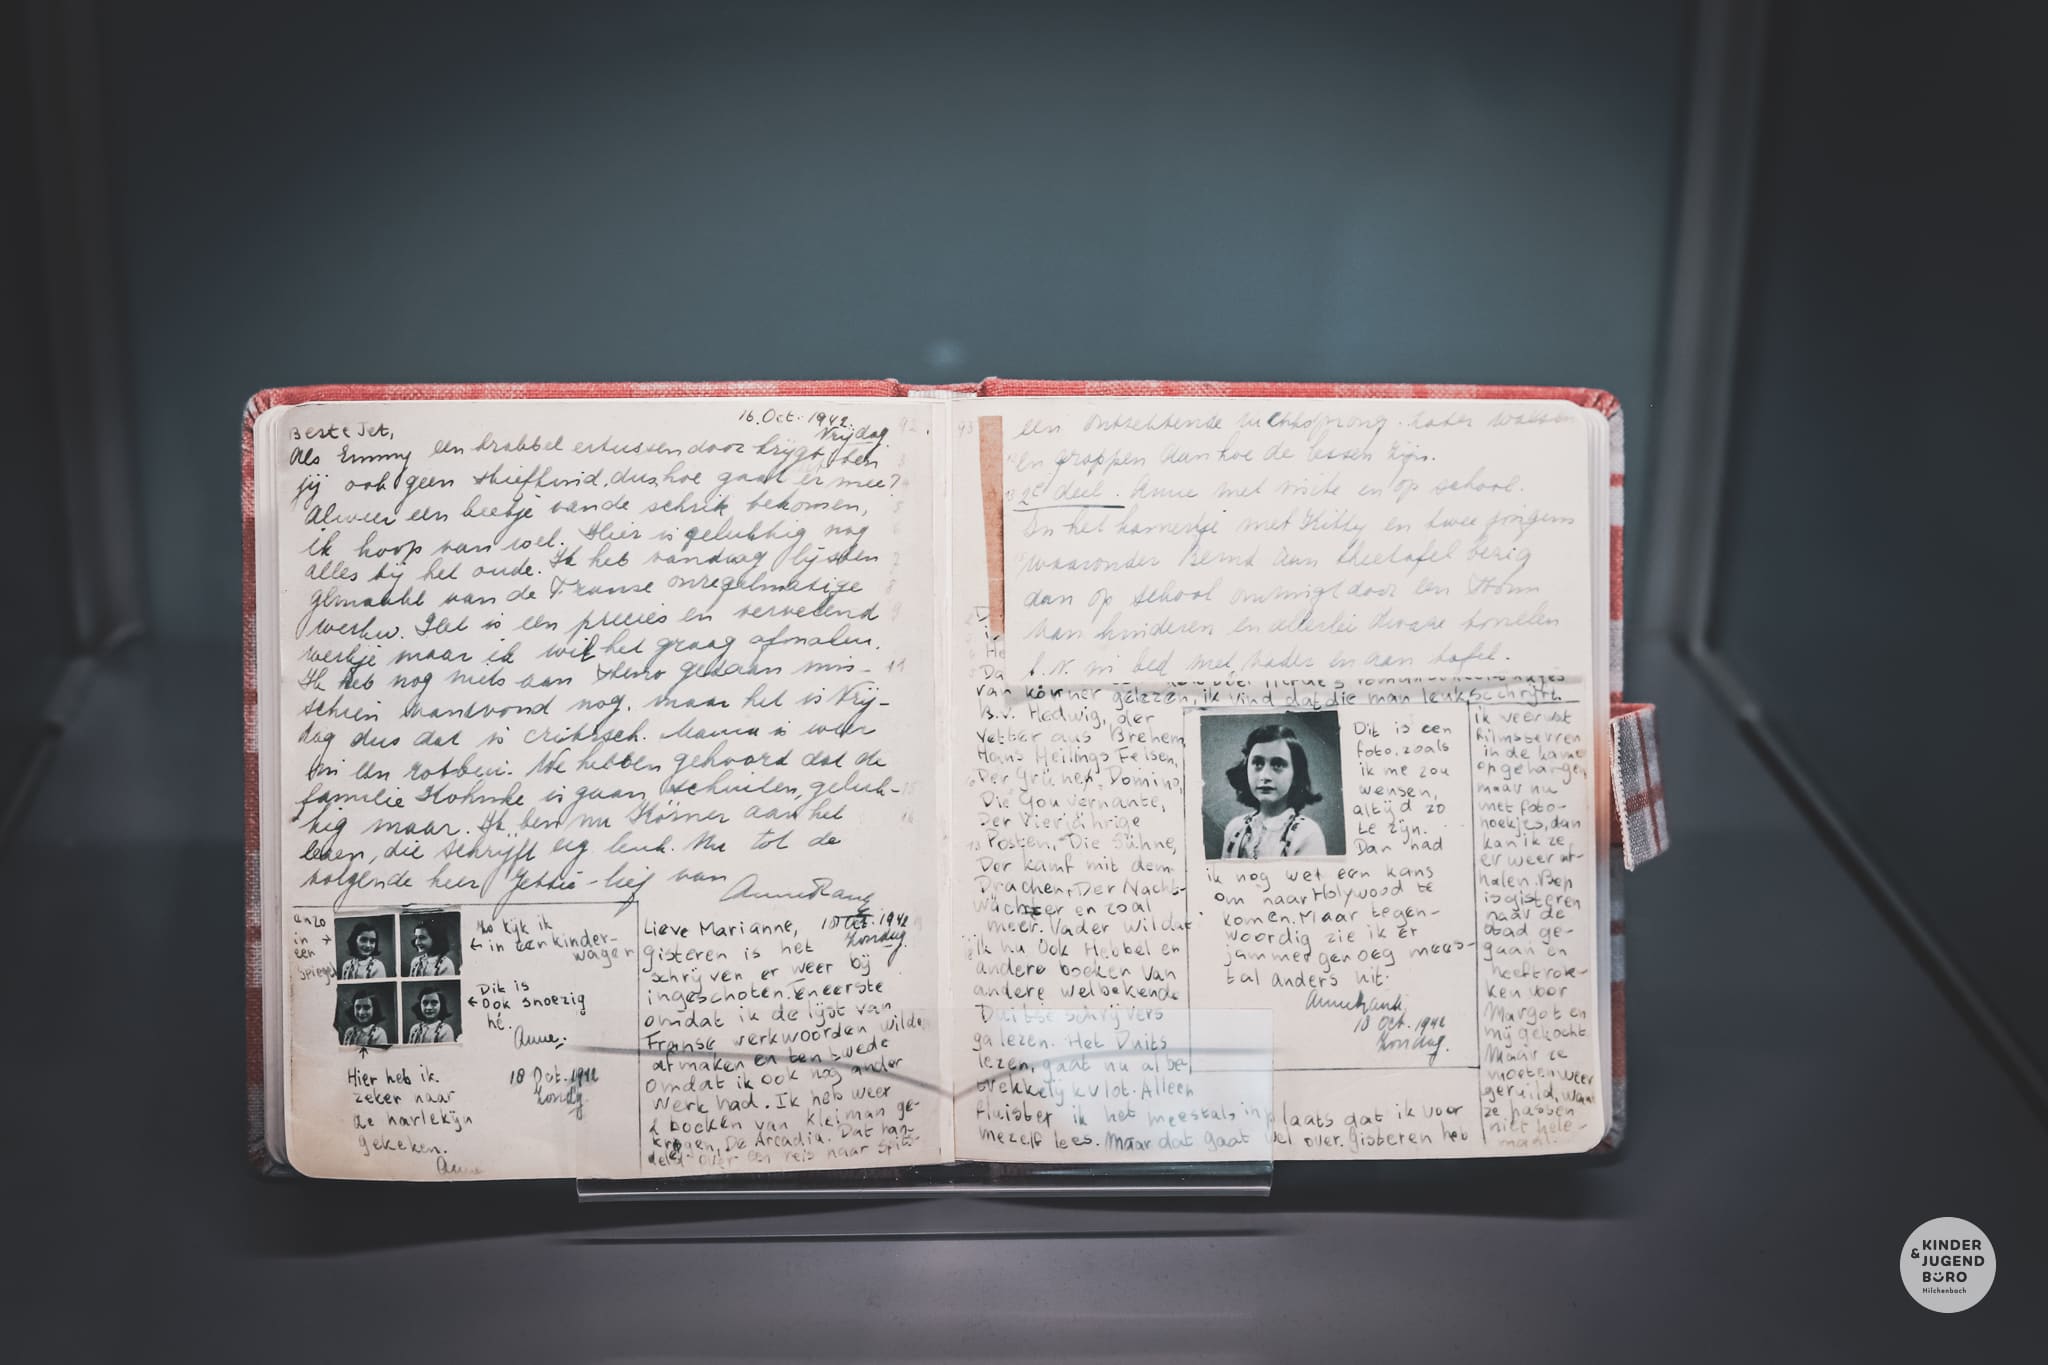 16. Oct. 1942.
Vrijdag.
Beste Jet,
Als Emmy een krabbel ertussendoor krijgt, ben
jij ook geen stiefkind, dus, hoe gaat er mee?
Alweer een beetje van de schrik bekomen,
ik hoop van wel. Hier is gelukkig nog
alles bij het oude. Ik heb vandaag lijsten
gemaakt van de Franse onregelmatige
werkw. Het is een precies en vervelend
werkje maar ik wil het graag afmaken.
Ik heb nog niets aan Steno gedaan mis-
schien vanavond nog. maar het is Vrij-
dag dus dat is critisch. Mama is weer
in een rotbui. We hebben gehoord dat de
familie is gaan schuilen, geluk-
kig maar. Ik ben nu Körner aan het
lezen, die schrijft erg leuk. Nu tot de
volgende keer Jettie-lief van
Anne Frank
anzo
in
een
spiegel
Zo kijk ik
in een kinder-
wagen
Dit is
ook snoezig
hé.
Anne.
Hier heb ik
zeker naar
de harlekijn
gekeken.
Anne
18 Oct. 1942
Zondag
Lieve Marianne,
18 Oct. 1942
Zondag.
gisteren is het
schrijven er weer bij
ingeschoten. en eerste
omdat ik de lijst van
Franse werkwoorden wilde
afmaken en ten twede
omdat ik ook nog ander
werk had. Ik heb weer
2 boeken van Kleiman ge-
kregen, De Arcadia. Dat han-
deld over een reis naar Spits-
een ontzettende luchtsprong. later walsen
en grappen aan hoe de lessen zijn.
2e deel. Anne met visite en op school.
In het kamertje met Kitty en twee jongens
waaronder Bernd aan theetafel bezig
dan op school omringd door een stroom
van kinderen en allerlei dwaze tonelen
b.v. in bed met vader en aan tafel.
van körner gelezen, ik vind dat die man leuk schrijft.
B.v. Hedwig, der
Vetter aus Brehem,
Hans Heilings Felsen,
Der Grüne, Domino,
Die Gouvernante,
Der Vierjährige
Posten, Die Sühne,
Der kamf mit dem
Drachen, Der Nacht-
wächter en zoal
meer. Vader wil dat
ik nu ook Hebbel en
andere boeken van
andere welbekende
Duitse schrijvers
ga lezen. Het Duits
lezen, gaat nu al be-
trekkelijk vlot. Alleen
fluister ik het meestals in plaats dat ik voor
mezelf lees. Maar dat gaat wel over. Gisteren heb
Dit is een
foto, zoals
ik me zou
wensen,
altijd zo
te zijn.
Dan had
ik nog wel een kans
om naar Holywood te
komen. Maar tegen-
woordig zie ik er
jammer genoeg mees-
tal anders uit.
Anne Frank
18 Oct. 1942
Zondag.
ik veer wat
filmsterren
in de kamer
opgehangen
maar nu
met foto-
hoekjes, dan
kan ik ze
er weer af-
halen. Bep
is gisteren
naar de
stad ge-
gaan en
heeft rok-
ken voor
Margot en
mij gekocht.
Maar ze
moeten weer
geruild, want
ze passen
niet hele-
maal.
KINDER
& JUGEND
BÜRO
Hilchenbach